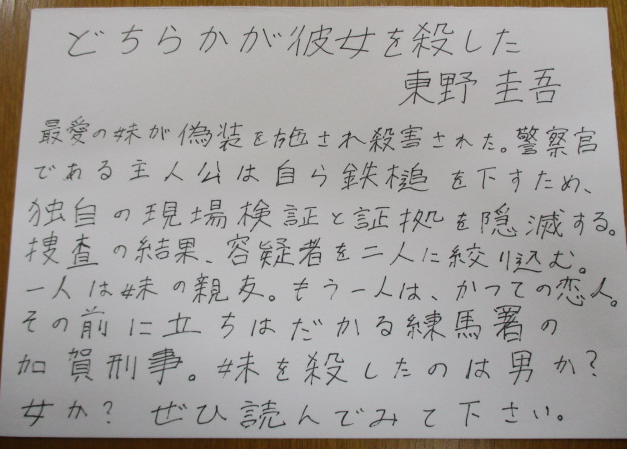 どちらかが彼女を殺した
東野 圭吾
最愛の妹が偽装を施され殺害された。警察官
である主人公は自ら鉄槌を下すため、
独自の現場検証と証拠を隠滅する。
捜査の結果、容疑者を二人に絞り込む。
一人は妹の親友。もう一人は、かつての恋人。
その前に立ちはだかる練馬署の
加賀刑事。妹を殺したのは男か?
女か? ぜひ読んでみて下さい。